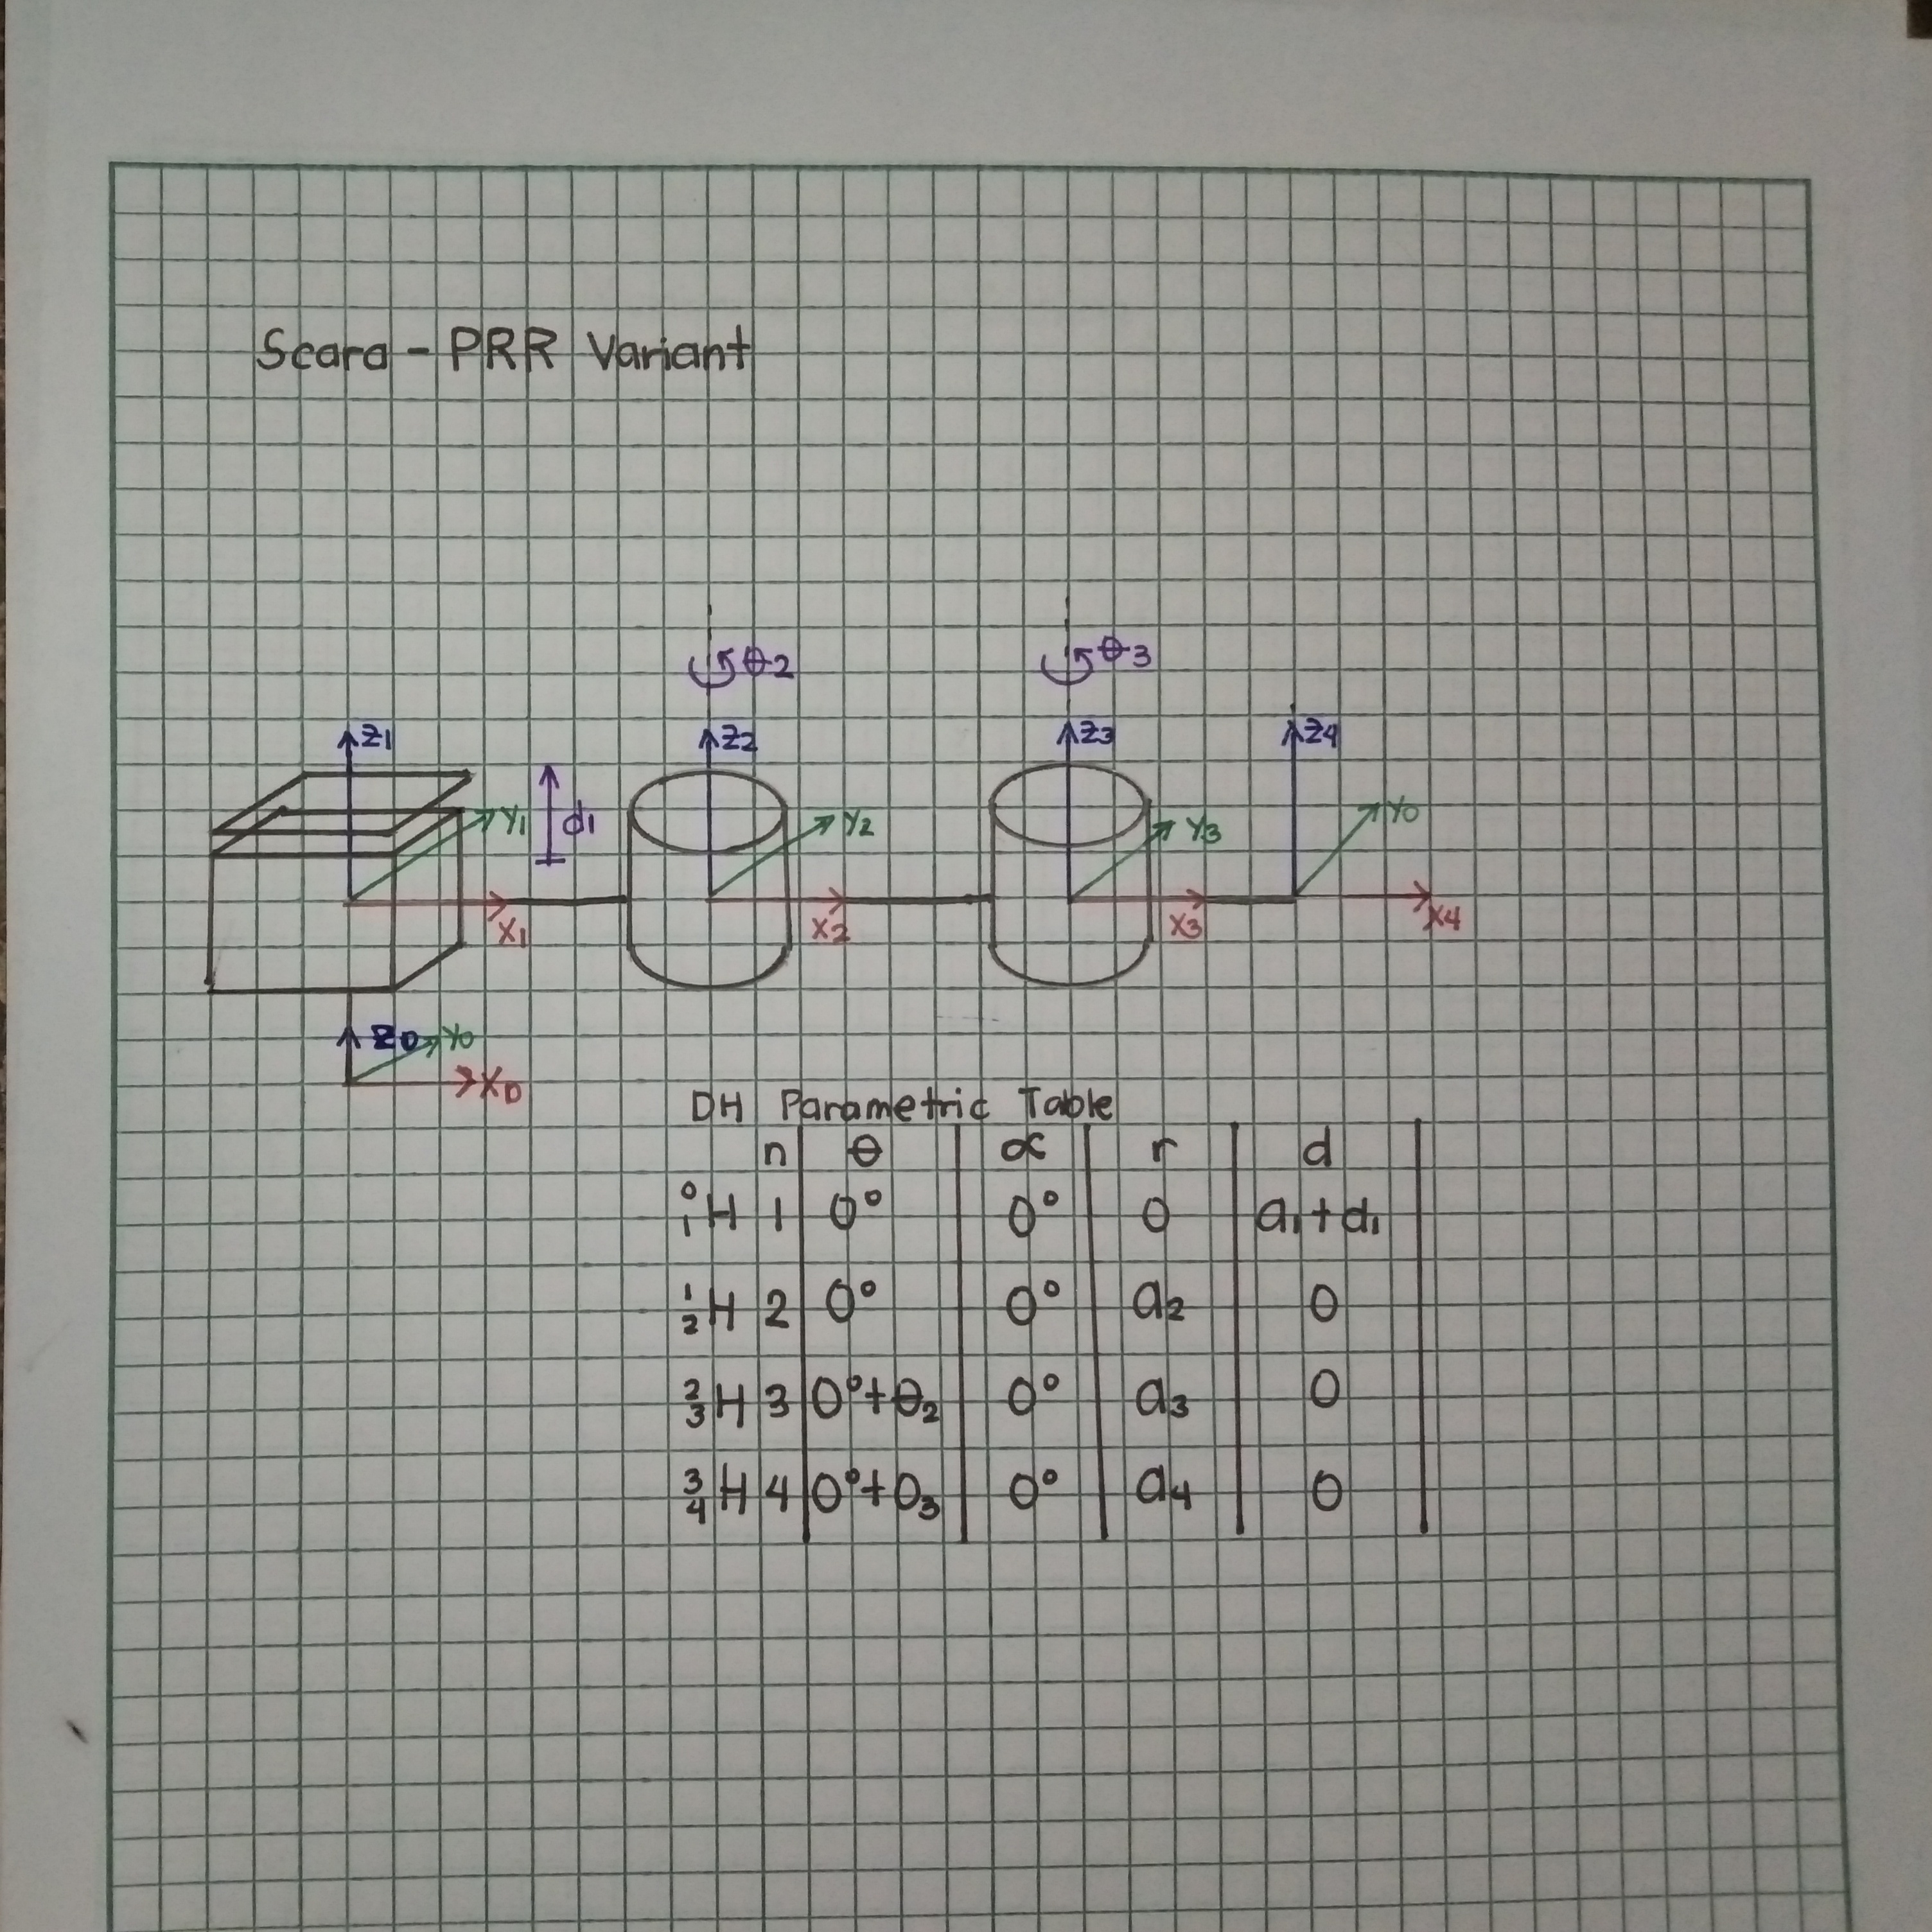 Scara - PRR Variant
θ2 θ3
Z1 Z2 Z3 Z4
Y1 d1 Y2 Y3 Y0
X1 X2 X3 X4
Z0 Y0
X0
DH Parametric Table
n θ α r d
⁰₁H 1 0° 0° 0 a₁+d₁
¹₂H 2 0° 0° a₂ 0
²₃H 3 0°+θ₂ 0° a₃ 0
³₄H 4 0°+O₃ 0° a₄ 0